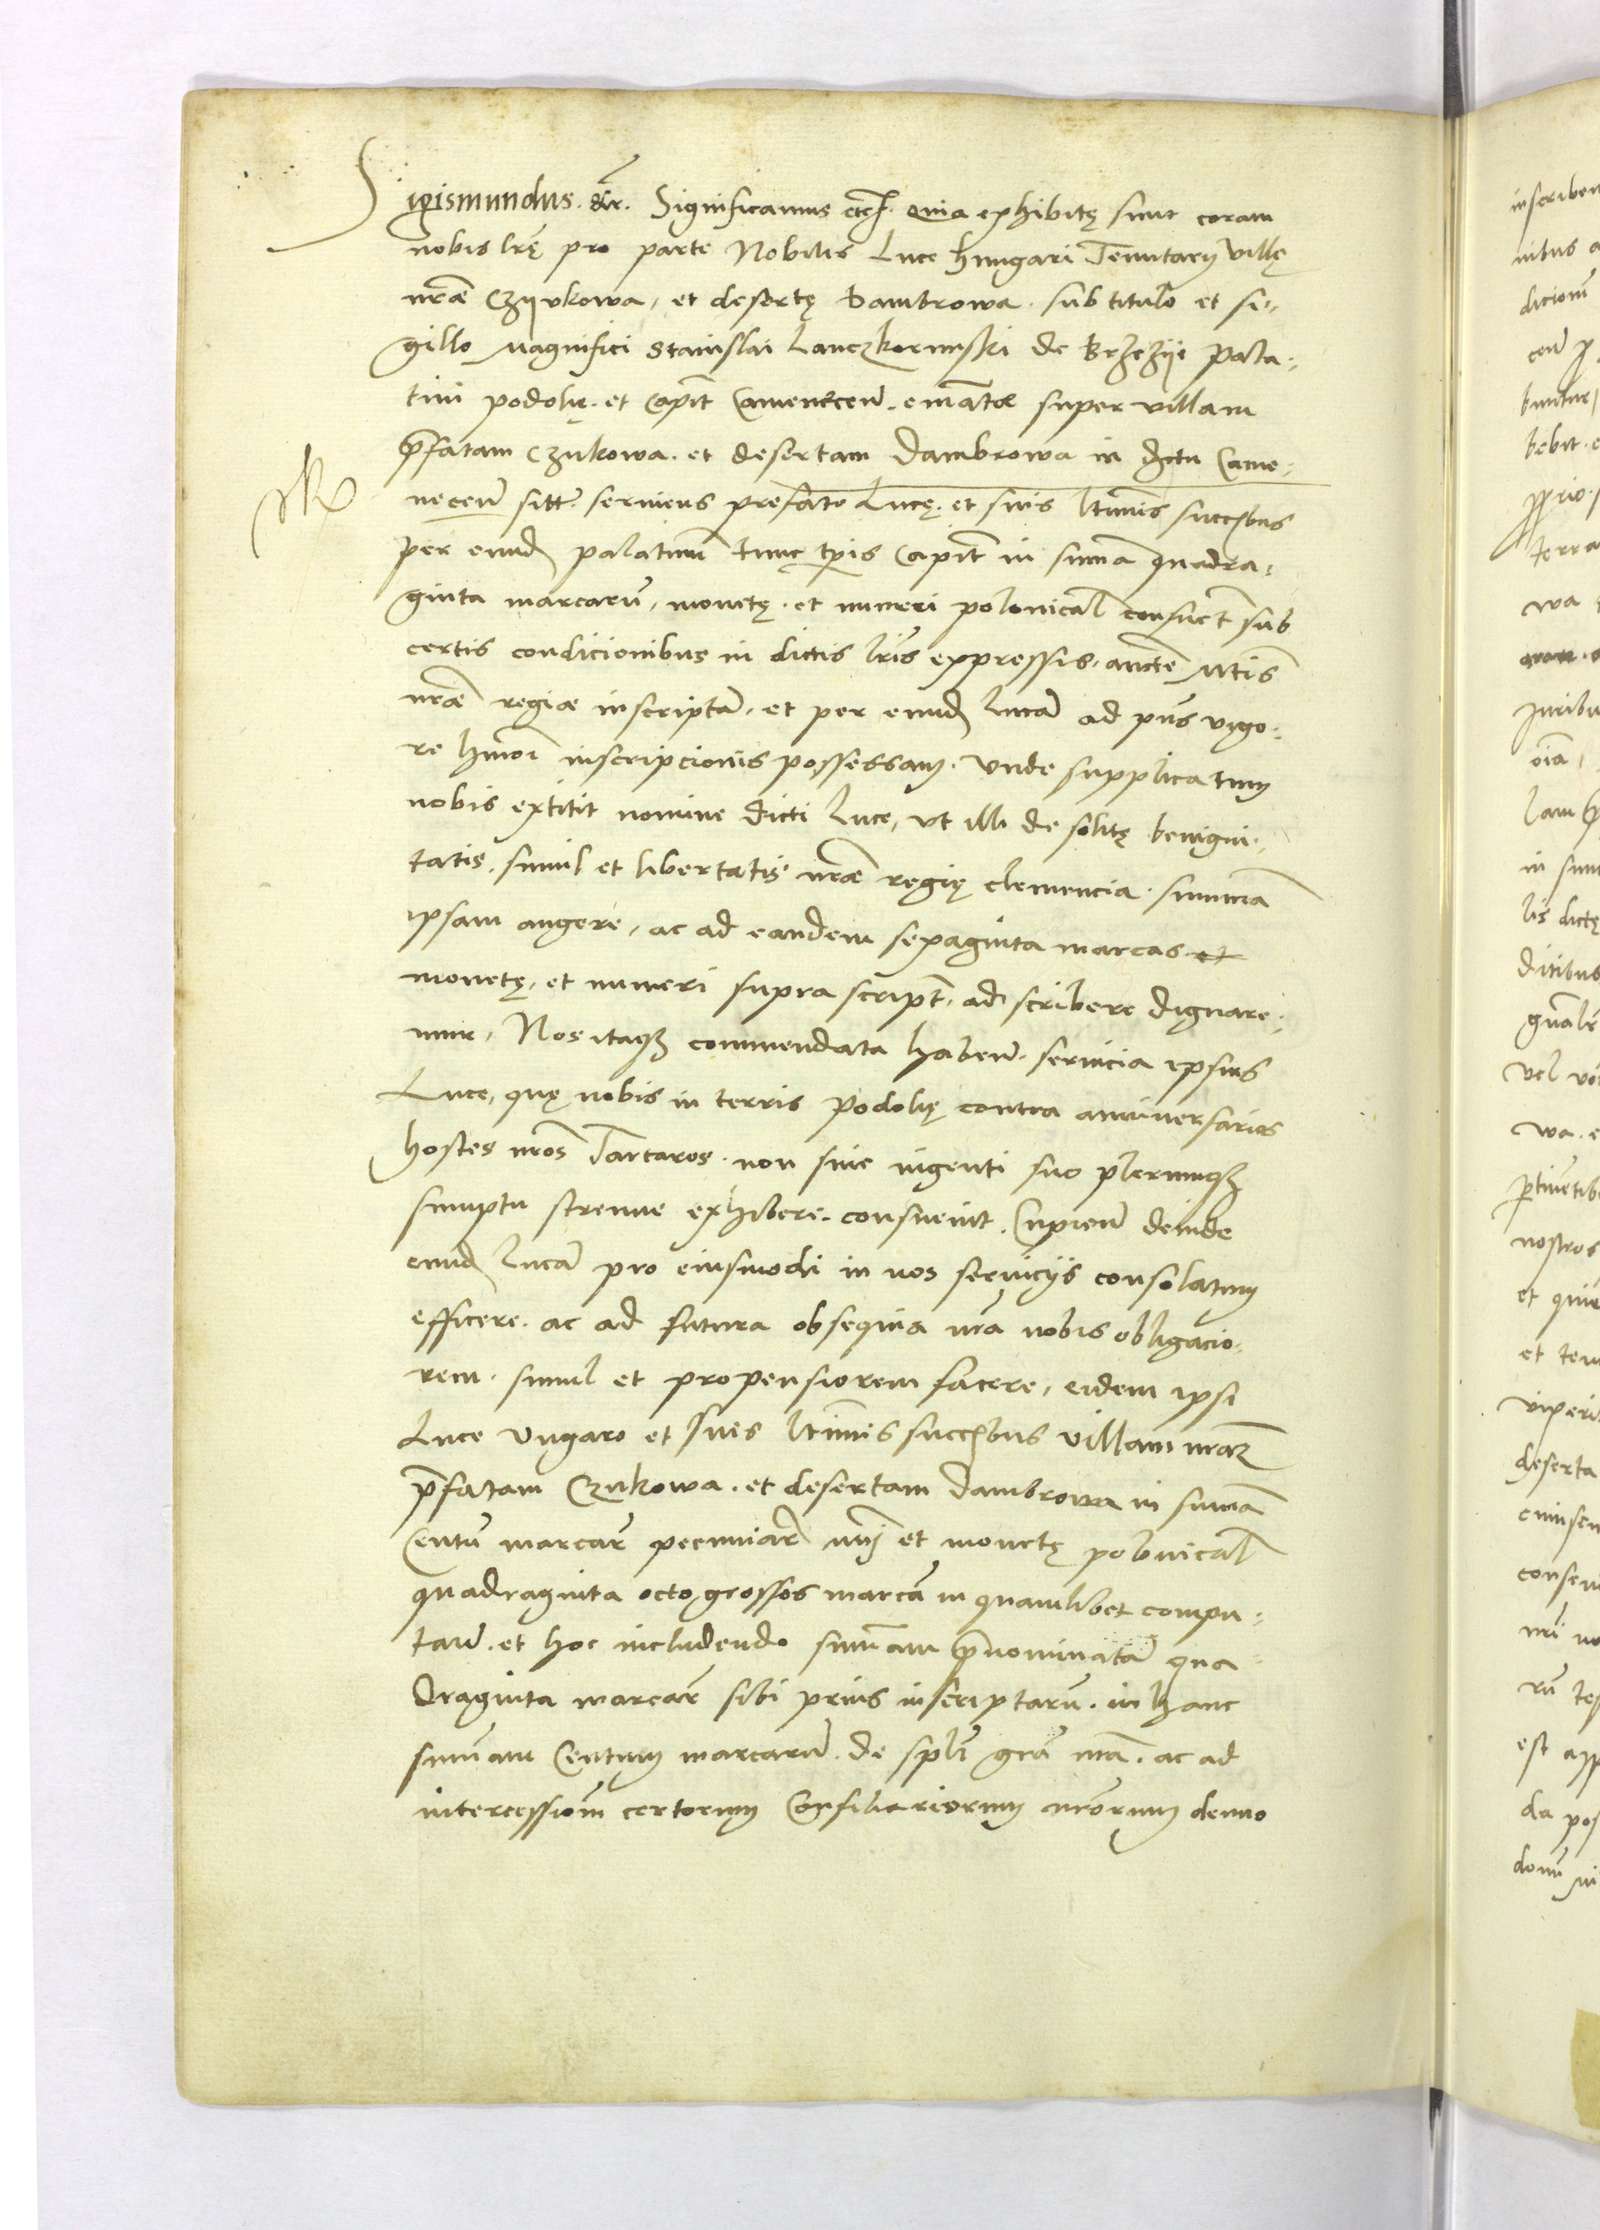 Sigismundus. etc. Significamus etc. quia exhibitę sunt coram
nobis lrę pro parte Nobilis Luce hungari Tenutarÿ villę
nrae Czyukowa, et desertę dambrowa. sub titulo et si-
gillo magnifici Stanislai Lanczkorunski de Brzezÿe pala-
tini podolię. et Capit Camenecen. emanatae super villam
prefatam Czukowa. et desertam dambrowa in dictu Came-
necen sitt. serviens prefato Lucę. et suis ltimis succibus
per eund palatinum tunc tpis Capit in suma quadra-
ginta marcaru, monetę. et numeri polonical consuet sub
certis condicionibus in dictis lris expressis. aucte Mtis
nrae regiae inscripta. et per eund luca ad pns vigo-
re hmoi inscripcionis possessam. Unde supplicatum
nobis extitit nomine dicti Luce, ut illi de solitę benigni-
tatis. simul et libertatis nrae regię clemencia. summa
ipsam augere, ac ad eandem sexaginta marcas et
monetę, et numeri supra script. ad scribere dignare-
mur, Nos itaqz commendata haben. servicia ipsius
Luce, quę nobis in terris podolię contra anniversarios
hostes nros Tartaros. non sine ingenti suo plerumqz
sumptu strenue exhibere. consuevit. Cupien deinde
eund luca pro eiusmodi in nos servicÿs consolatum
efficere. ac ad futura obsequia nra nobis obligacio-
rem. simul et propensiorem facere, eidem ipsi
Luce Ungaro et suis ltimis succibus villam nram
prefatam Czukowa. et desertam dambrowa in suma
Centu marcar pecuniar nui et monetę polonical
quadraginta octo grossos marca in quamlibet compu-
tan. et hoc includendo summam prenominata qua-
draginta marcar sibi prius inscriptaru. in hanc
summam Centum marcaru. de spli gra nra. ac ad
intercessiom certorum Consiliariorum nrorum denuo